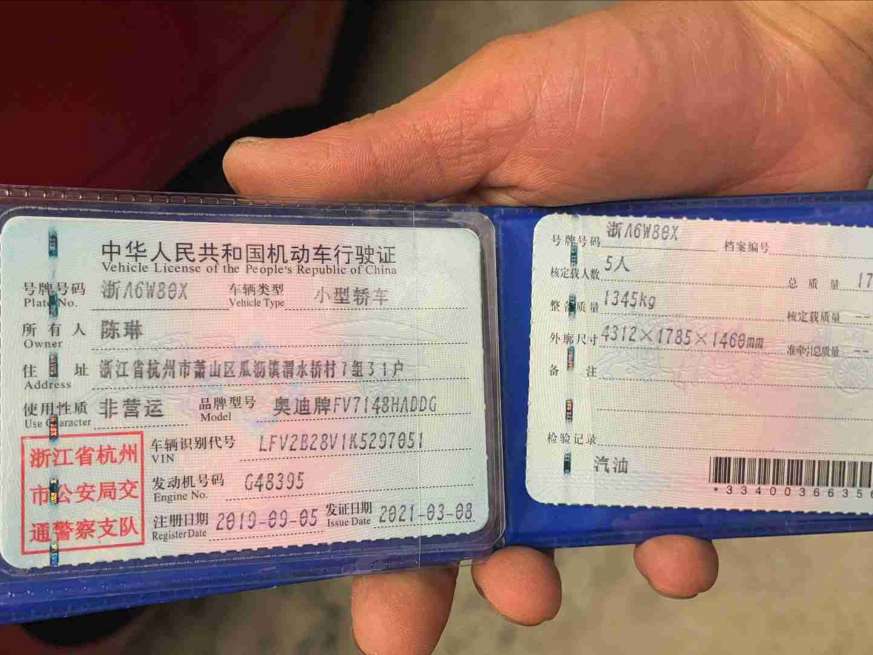 中华人民共和国机动车行驶证
Vehicle License of the People's Republic of China
号牌号码 浙A6W80X 车辆类型 小型轿车
Plate No. Vehicle Type
所有人 陈琳
Owner
住址 浙江省杭州市萧山区瓜沥镇渭水桥村7组31户
Address
使用性质 非营运 品牌型号 奥迪牌FV7148HADDG
Use Character Model
浙江省杭州
市公安局交
通警察支队
车辆识别代号 LFV2B28V1K5297051
VIN
发动机号码 G48395
Engine No.
注册日期 2019-09-05 发证日期 2021-03-08
Register Date Issue Date
号牌号码 浙A6W80X 档案编号
核定载人数 5人 总质量 17
整备质量 1345kg 核定载质量 --
外廓尺寸 4312×1785×1460mm 准牵引总质量 --
备注
检验记录
汽油
*33400366356